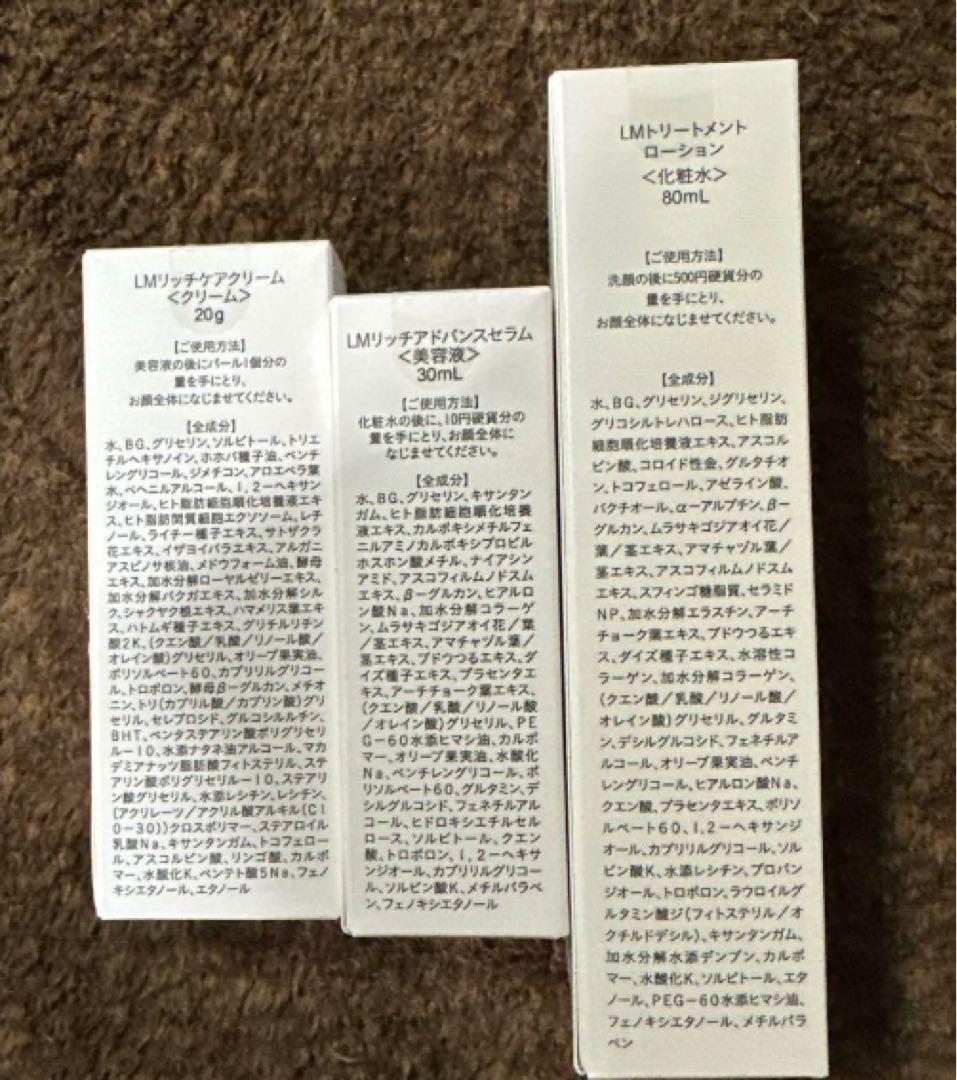 LMリッチケアクリーム
<クリーム>
20g
【ご使用方法】
美容液の後にパール1個分の
量を手にとり、
お顔全体になじませてください。
【全成分】
水、BG、グリセリン、ソルビトール、トリエ
チルヘキサノイン、ホホバ種子油、ペンチ
レングリコール、ジメチコン、アロエベラ葉
水、ベヘニルアルコール、1，2－ヘキサン
ジオール、ヒト脂肪細胞順化培養液エキ
ス、ヒト脂肪間質細胞エクソソーム、レチ
ノール、ライチー種子エキス、サトザクラ
花エキス、イザヨイバラエキス、アルガニ
アスピノサ核油、メドウフォーム油、酵母
エキス、加水分解ローヤルゼリーエキス、
加水分解バクガエキス、加水分解シル
ク、シャクヤク根エキス、ハマメリス葉エキ
ス、ハトムギ種子エキス、グリチルリチン
酸2K、(クエン酸／乳酸／リノール酸／
オレイン酸)グリセリル、オリーブ果実油、
ポリソルベート60、カプリリルグリコー
ル、トロポロン、酵母β－グルカン、メチオ
ニン、トリ(カプリル酸／カプリン酸)グリ
セリル、セレブロシド、グルコシルルチン、
BHT、ペンタステアリン酸ポリグリセリ
ル－10、水添ナタネ油アルコール、マカ
デミアナッツ脂肪酸フィトステリル、ステ
アリン酸ポリグリセリル－10、ステアリ
ン酸グリセリル、水添レシチン、レシチン、
(アクリレーツ／アクリル酸アルキル(C1
0－30))クロスポリマー、ステアロイル
乳酸Na、キサンタンガム、トコフェロー
ル、アスコルビン酸、リンゴ酸、カルボ
マー、水酸化K、ペンテト酸5Na、フェノ
キシエタノール、エタノール
LMリッチアドバンスセラム
<美容液>
30mL
【ご使用方法】
化粧水の後に、10円硬貨分の
量を手にとり、お顔全体に
なじませてください。
【全成分】
水、BG、グリセリン、キサンタン
ガム、ヒト脂肪細胞順化培養
液エキス、カルボキシメチルフェ
ニルアミノカルボキシプロピル
ホスホン酸メチル、ナイアシン
アミド、アスコフィルムノドスム
エキス、β－グルカン、ヒアルロ
ン酸Na、加水分解コラーゲン
、ムラサキゴジアオイ花／葉
／茎エキス、アマチャヅル葉／
茎エキス、ブドウつるエキス、ダ
イズ種子エキス、プラセンタエ
キス、アーチチョーク葉エキス、
(クエン酸／乳酸／リノール酸
／オレイン酸)グリセリル、PE
G－60水添ヒマシ油、カルボ
マー、オリーブ果実油、水酸化
Na、ペンチレングリコール、ポ
リソルベート60、グルタミン、デ
シルグルコシド、フェネチルアル
コール、ヒドロキシエチルセル
ロース、ソルビトール、クエン
酸、トロポロン、1，2－ヘキサ
ンジオール、カプリリルグリコー
ル、ソルビン酸K、メチルパラベ
ン、フェノキシエタノール
LMトリートメント
ローション
<化粧水>
80mL
【ご使用方法】
洗顔の後に500円硬貨分の
量を手にとり、
お顔全体になじませてください。
【全成分】
水、BG、グリセリン、ジグリセリン、
グリコシルトレハロース、ヒト脂肪
細胞順化培養液エキス、アスコル
ビン酸、コロイド性金、グルタチオ
ン、トコフェロール、アゼライン酸、
バクチオール、α－アルブチン、β－
グルカン、ムラサキゴジアオイ花／
葉／茎エキス、アマチャヅル葉／
茎エキス、アスコフィルムノドスム
エキス、スフィンゴ糖脂質、セラミド
NP、加水分解エラスチン、アーチ
チョーク葉エキス、ブドウつるエキ
ス、ダイズ種子エキス、水溶性コ
ラーゲン、加水分解コラーゲン、
(クエン酸／乳酸／リノール酸／
オレイン酸)グリセリル、グルタミ
ン、デシルグルコシド、フェネチルア
ルコール、オリーブ果実油、ペンチ
レングリコール、ヒアルロン酸Na、
クエン酸、プラセンタエキス、ポリソ
ルベート60、1，2－ヘキサンジ
オール、カプリリルグリコール、ソル
ビン酸K、水添レシチン、プロパン
ジオール、トロポロン、ラウロイルグ
ルタミン酸ジ(フィトステリル／オ
クチルドデシル)、キサンタンガム、
加水分解水添デンプン、カルボ
マー、水酸化K、ソルビトール、エタ
ノール、PEG－60水添ヒマシ油、
フェノキシエタノール、メチルパラ
ベン